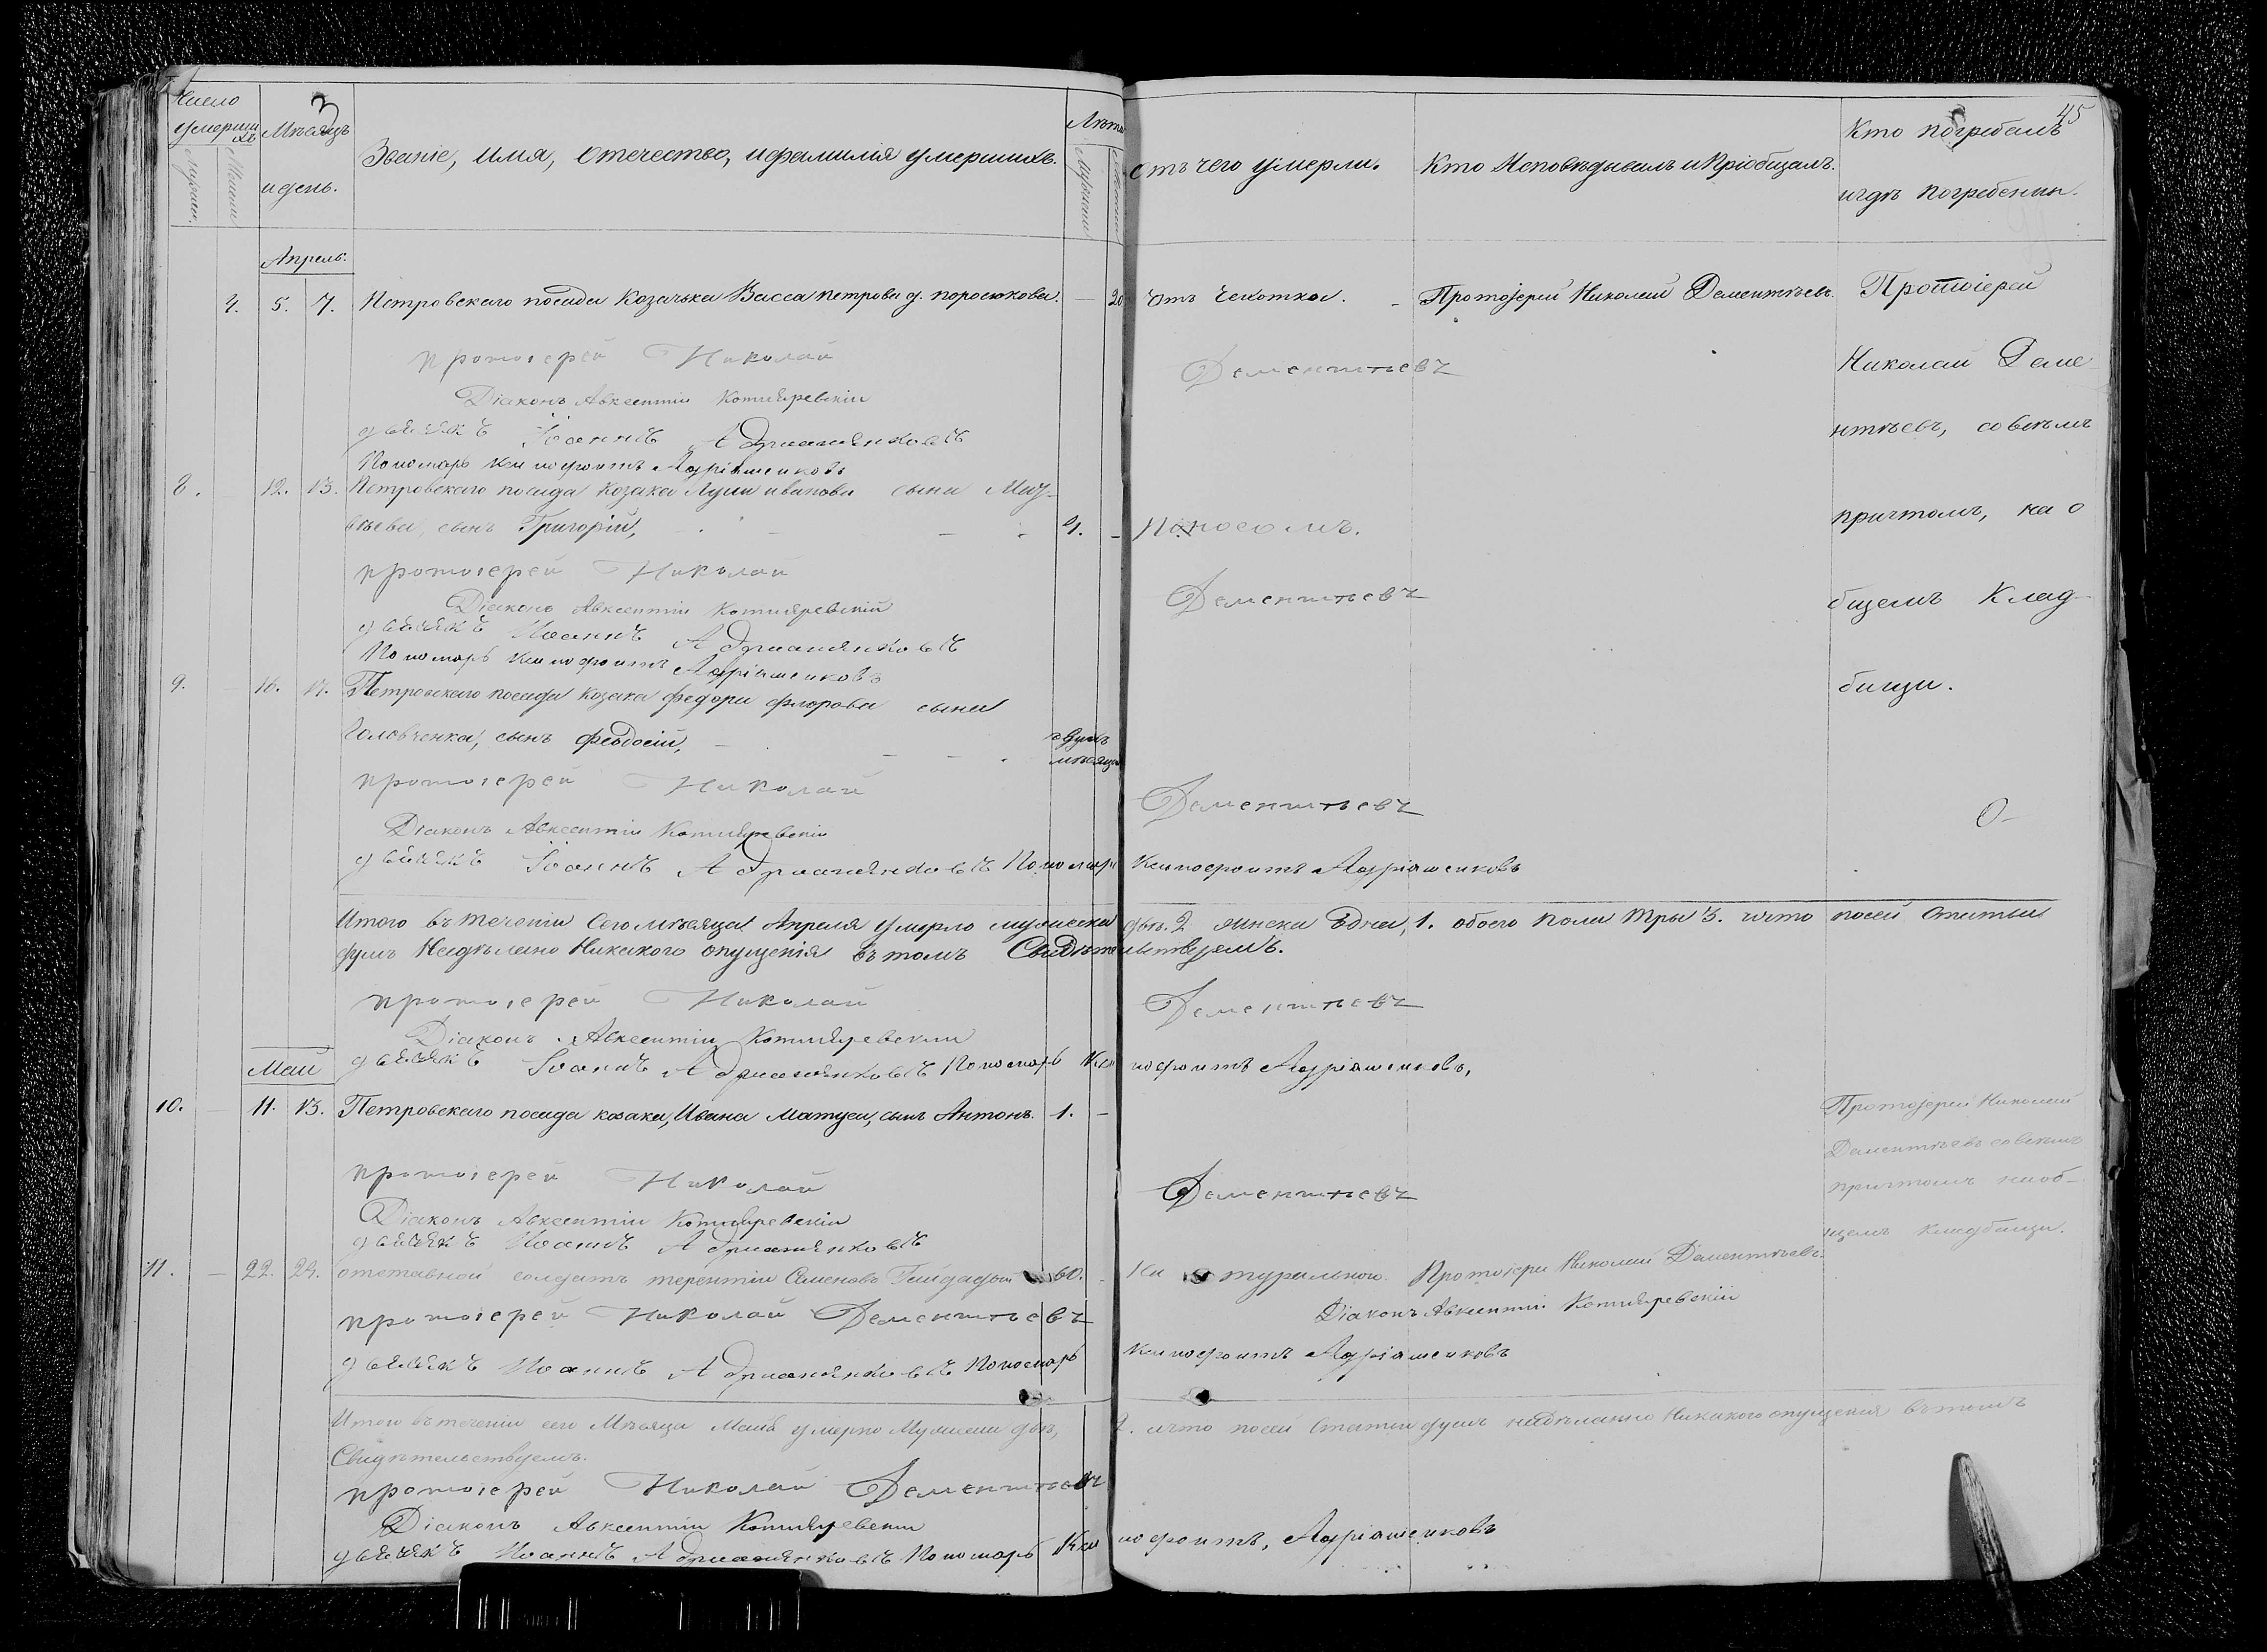 Число умершихъ
Мужеск.
Женск.
Мѣсяцъ и день.
Званіе, имя, отечество, ифамилія умершихъ.
Лѣта
Мужескаго
отъ чего умерли.
Кто Исповѣдывалъ и Пріобщалъ.
Кто погребалъ
игдѣ погребенны.
45
Апрель.
4. 5. 7. Петровскаго посада Козачька Васса петрова д. поросюкова. — 20 Отъ Чехотки. - Протоіерей Николай Дементьевъ. Протоіерей
Николай Деме-
нтьевъ, совсѣмъ
причтомъ, на о
бщемъ Клад-
бищи.
протоіерей Николай Дементьевъ
Діаконъ Авксентій Котляревскій
дьячекъ Іоаннъ Адриашенковъ
Пономарь Ксенофонтъ Адріашенковъ
8. 12. 13. Петровскаго посада Козака Луки иванова сына Мат-
вѣева, сынъ Григорій, Поносомъ.
протоіерей Николай Дементьевъ
Діаконъ Авксентій Котляревскій
дьячекъ Иоаннъ Адриашенковъ
Пономарь Ксенофонтъ Адріашенковъ
9. 16. 17. Петровскаго посада Козака федора флорова сына
Головченка, сынъ феодосій, мѣсяцъ
протоіерей Николай Дементьевъ
Діаконъ Авксентій Котляревскій
дьячекъ Іоаннъ Адриашенковъ Пономарь Ксенофонтъ Адріашенковъ
Итого въ теченіи Сего мѣсяца Апреля умерло мужеска два. 2 женска Одна, 1. обоего пола Три 3. что посей Статьи
душъ Недѣлано Никакого опущенія въ томъ Свидѣтельствуемъ.
протоіерей Николай Дементьевъ
Діаконъ Авксентій Котляревскій
дьячекъ Іоаннъ Адриашенковъ Пономарь Ксенофонтъ Адріашенковъ,
Май
10. 11. 13. Петровскаго посада козака, Ивана Матуси, сынъ Антонъ. 1. — Протоіерей Николай
Дементьевъ совсѣмъ
причтомъ наоб-
щемъ кладбищи.
протоіерей Николай Дементьевъ
Діаконъ Авксентій Котляревскій
дьячекъ Иоаннъ Адриашенковъ
11. — 22. 24. отставной солдатъ терентій Семеновъ 60. Натуральною. Протоіерей Николай Дементьевъ.
протоіерей Николай Дементьевъ Діаконъ Авксентій Котляревскій
дьячекъ Иоаннъ Адриашенковъ Пономарь Ксенофонтъ Адріашенковъ
Итого въ теченіи сего Мѣсяца Маія умерло Мужеска два, 2. что посей Статьи душъ недѣланно Никакого опущенія въ томъ
Свидѣтельствуемъ.
протоіерей Николай Дементьевъ
Діаконъ Авксентій Котляревскій
дьячекъ Иоаннъ Адриашенковъ Пономарь Ксенофонтъ, Адріашенковъ